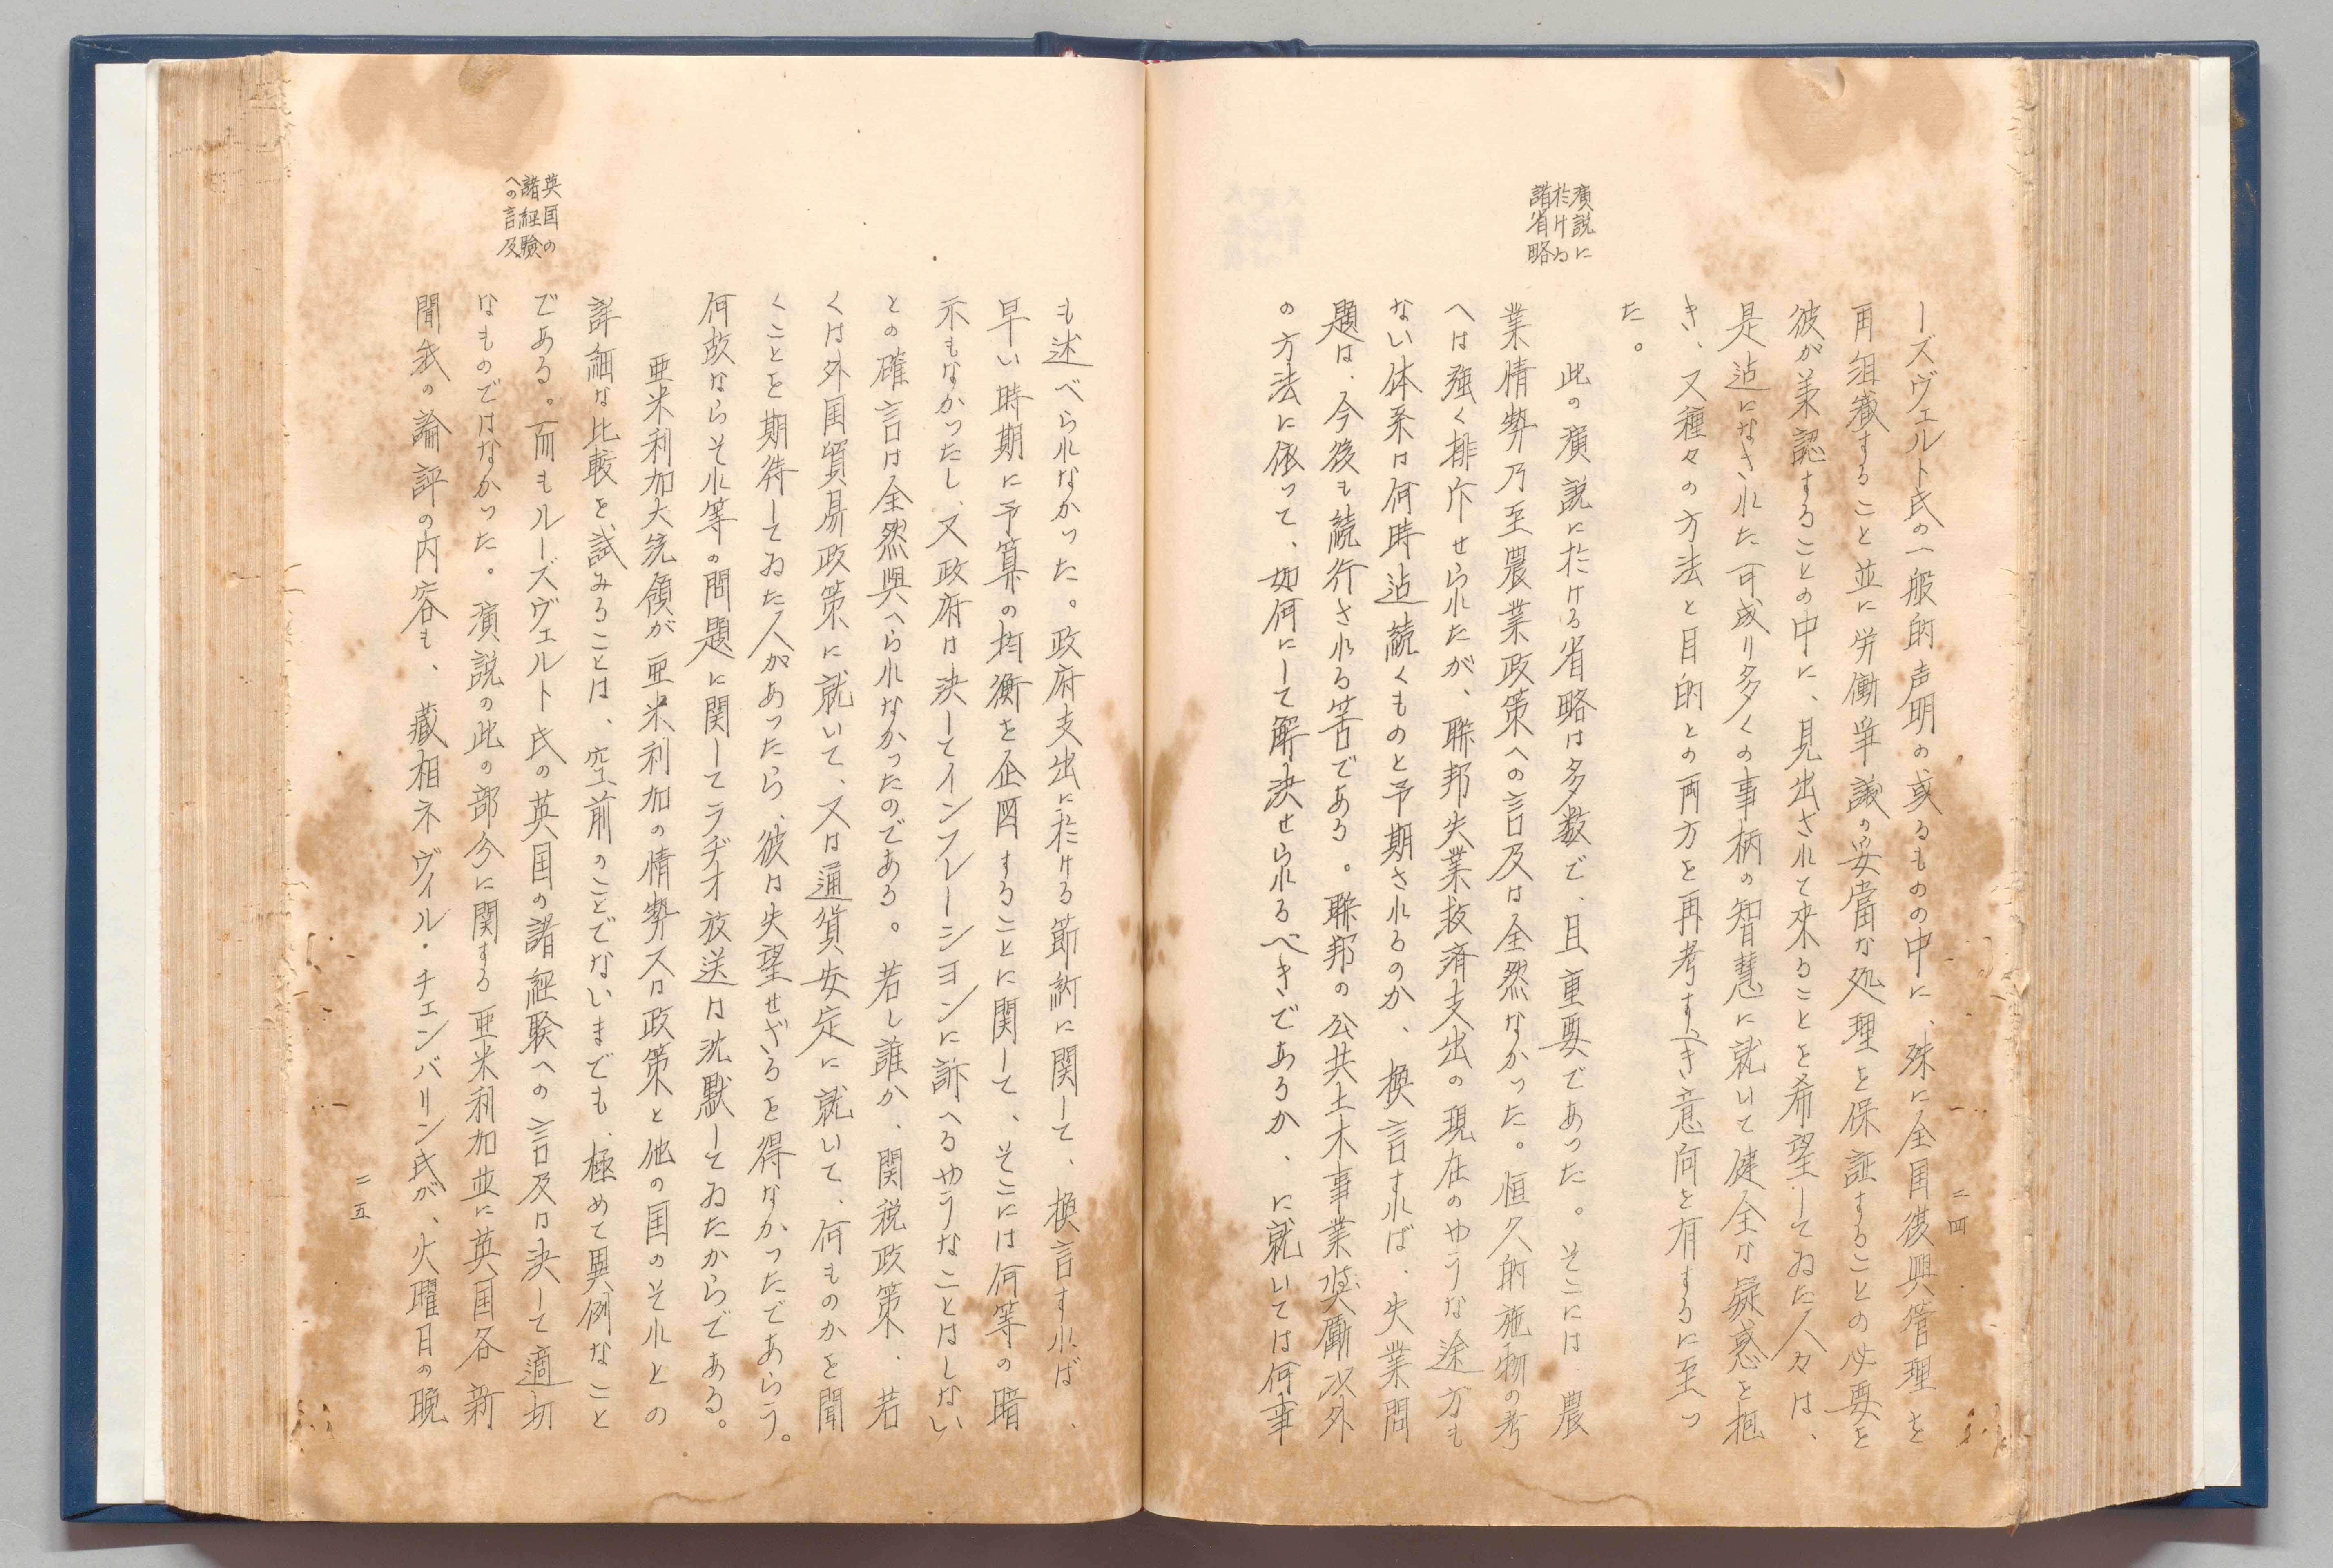 二四
ーズヴェルト氏の一般的声明の或るものの中に、殊に全国復興管理を
再組織すること並に労働争議の妥当な処理を保証することの必要を
彼が承認することの中に、見出されて来ることを希望してゐた人々は、
是迠になされた可成り多くの事柄の智慧に就いて健全な疑惑を抱
き、又種々の方法と目的との両方を再考すべき意向を有するに至つ
た。
演説に
於ける
諸省略
此の演説に於ける省略は多数で、且重要であつた。そこには、農
業情勢乃至農業政策への言及は全然なかつた。恒久的施物の考
へは強く排斥せられたが、聯邦失業救済支出の現在のやうな途方も
ない体系は何時迠続くものと予期されるのか、換言すれば、失業問
題は、今後も続行される筈である。聯邦の公共土木事業奨励以外
の方法に依つて、如何にして解決せられるべきであるか、に就いては何事
も述べられなかつた。政府支出に於ける節約に関して、換言すれば、
早い時期に予算の均衡を企図することに関して、そこには何等の暗
示もなかつたし、又政府は決してインフレーシヨンに訴へるやうなことはしない
との確言は全然與へられなかつたのである。若し誰か、関税政策、若
くは外国貿易政策に就いて、又は通貨安定に就いて、何ものかを聞
くことを期待してゐた人があつたら、彼は失望せざるを得なかつたであらう。
何故ならそれ等の問題に関してラヂオ放送は沈默してゐたからである。
英国の
諸経驗
への言及
亜米利加大統領が亜米利加の情勢又は政策と他の国のそれとの
詳細な比較を試みることは、空前のことでないまでも、極めて異例なこと
である。而もルーズヴェルト氏の英国の諸経験への言及は決して適切
なものではなかつた。演説の此の部分に関する亜米利加並に英国各新
聞紙の論評の内容も、藏相ネヴィル・チェンバリン氏が、火曜日の晩
二五